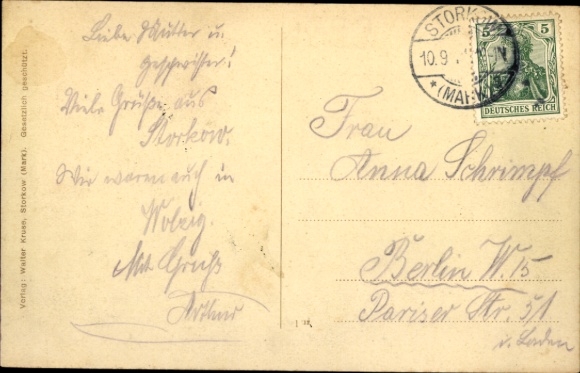 Liebe Mutter u.
Geschwister!
Viele Grüße aus
Storkow.
Wir waren auch in
Wolzig.
Mit Gruß
Arthur
STORKOW
10.9.
* (MARK) *
5 5
DEUTSCHES REICH
Frau
Anna Schrimpf
Berlin W. 15
Pariser Str. 51
i. Laden
Verlag: Walter Kruse, Storkow (Mark). Gesetzlich geschützt.